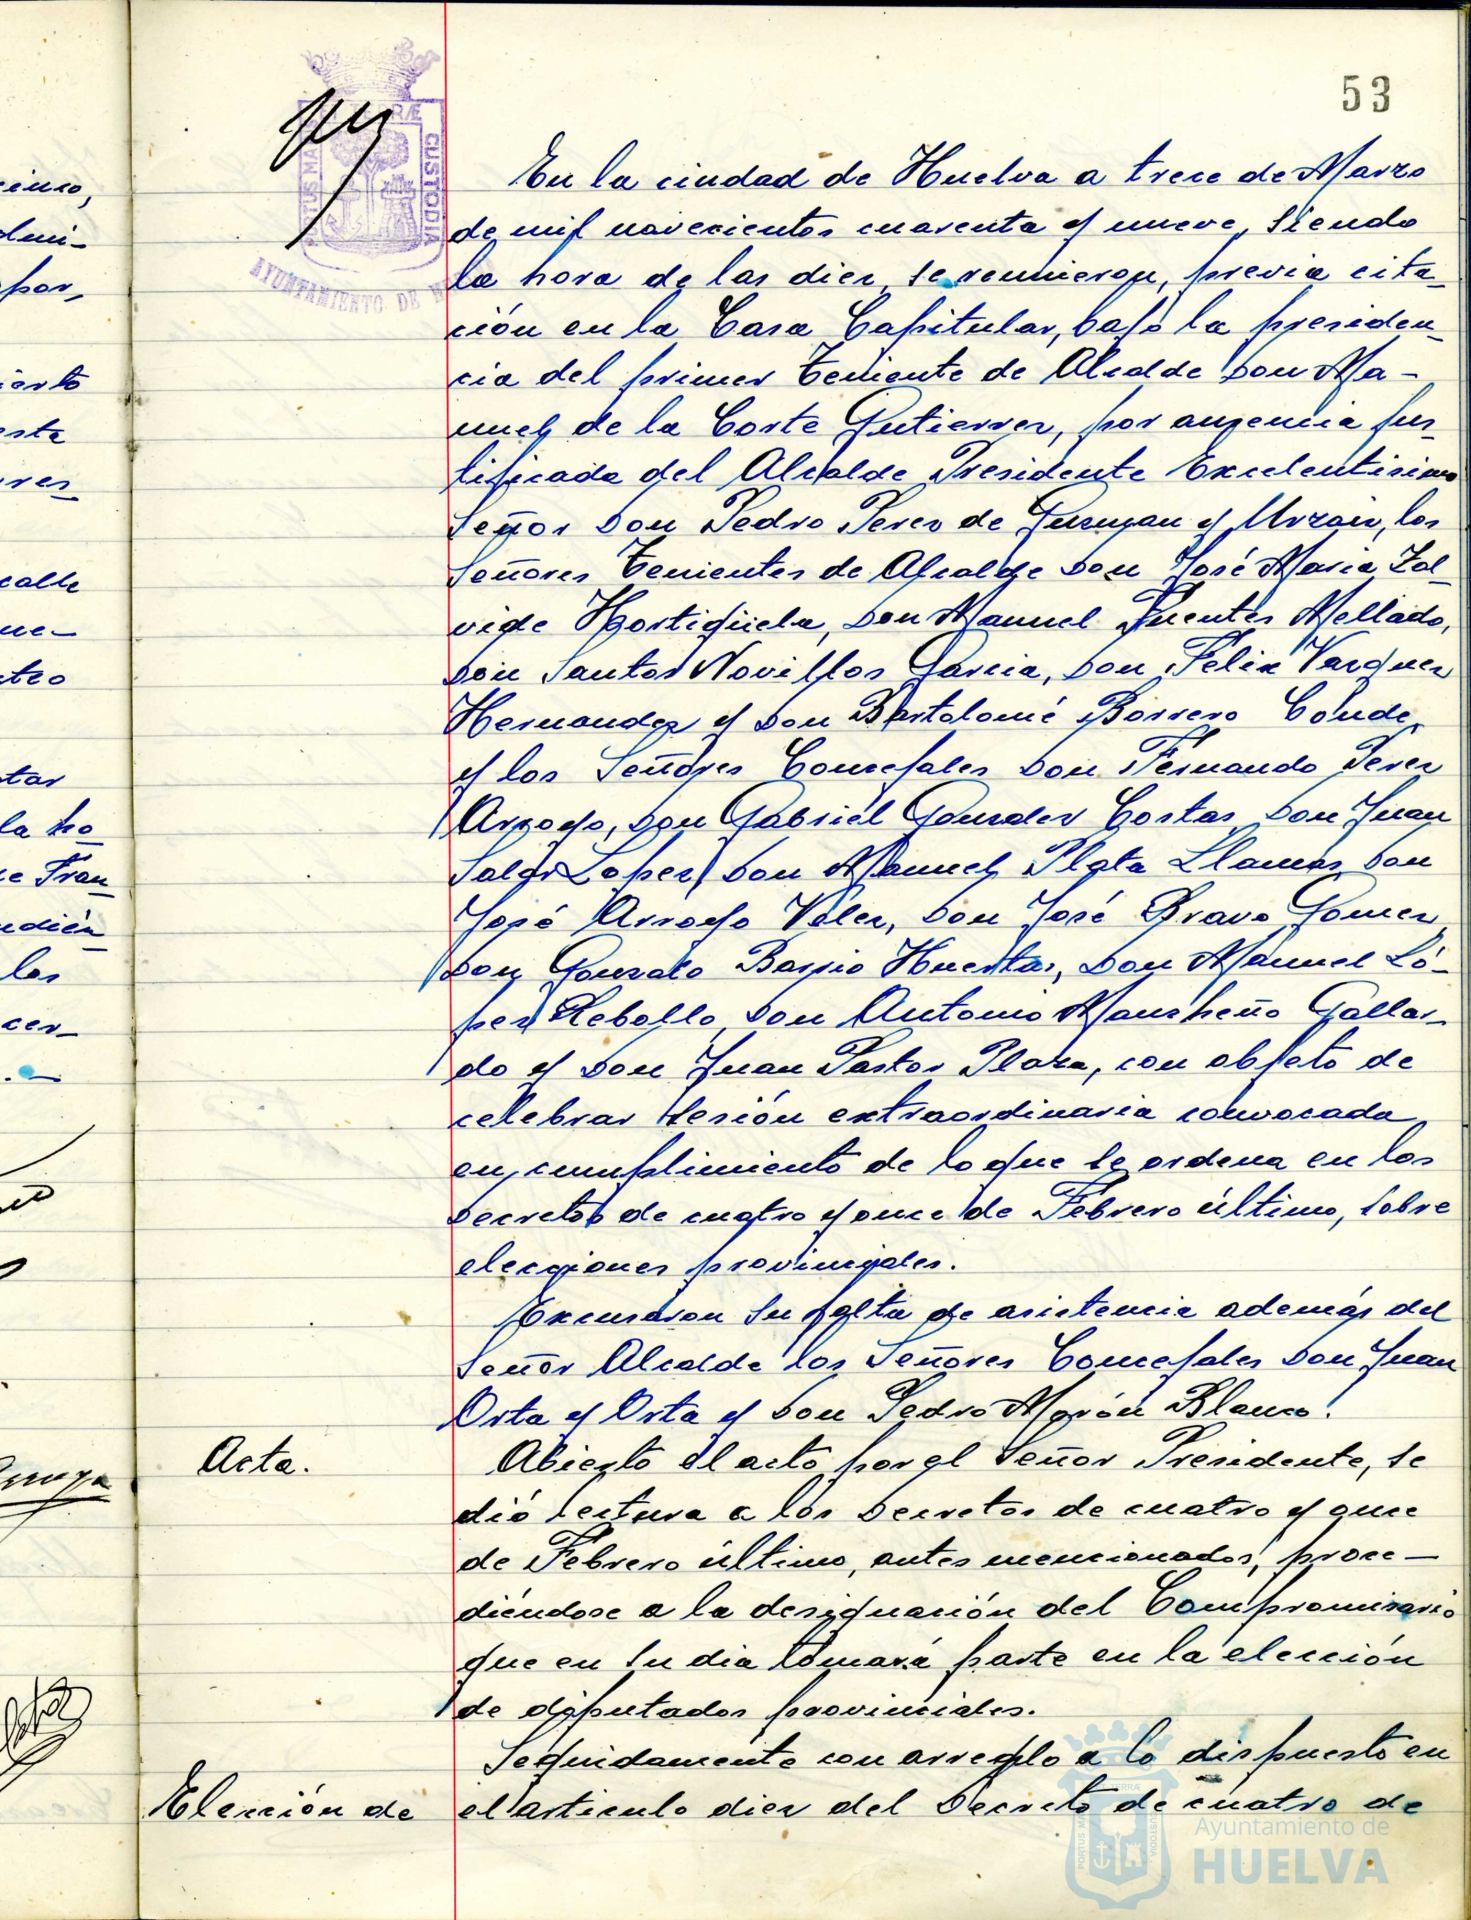 53
En la ciudad de Huelva a trece de Marzo
de mil novecientos cuarenta y nueve, siendo
la hora de las diez, se reunieron, previa cita-
ción en la Casa Capitular, bajo la presiden-
cia del primer Teniente de Alcalde Don Ma-
nuel de la Corte Gutierrez, por ausencia jus-
tificada del Alcalde Presidente Excelentisimo
Señor Don Pedro Perez de Guzman y Urzaiz, los
Señores Tenientes de Alcalde Don José Maria Zal-
vide Hortigüela, Don Manuel Fuentes Mellado,
Don Santos Novillos Garcia, Don Felix Vazquez
Hernandez y Don Bartolomé Borrero Conde,
y los Señores Concejales Don Fernando Perez
Arroyo, Don Gabriel Gonzalez Costas, Don Juan
Salas Lopez, Don Manuel Plata Llamas, Don
José Arroyo Vélez, Don José Bravo Gomez,
Don Gonzalo Barrio Huertas, Don Manuel Ló-
pez Rebollo, Don Antonio Mancheño Gallar-
do y Don Juan Pastor Plaza, con objeto de
celebrar sesión extraordinaria convocada
en cumplimiento de lo que se ordena en los
Decretos de cuatro y once de Febrero último, sobre
elecciones provinciales.
Excusaron su falta de asistencia además del
Señor Alcalde los Señores Concejales Don Juan
Orta y Orta y Don Pedro Morón Blanco.
Acta. Abierto el acto por el Señor Presidente, se
dió lectura a los Decretos de cuatro y once
de Febrero último, antes mencionados, proce-
diéndose a la designación del Compromisario
que en su dia tomará parte en la elección
de diputados provinciales.
Seguidamente con arreglo a lo dispuesto en
Elección de el articulo diez del Decreto de cuatro de
CUSTODIA
AYUNTAMIENTO DE
Ayuntamiento de
HUELVA